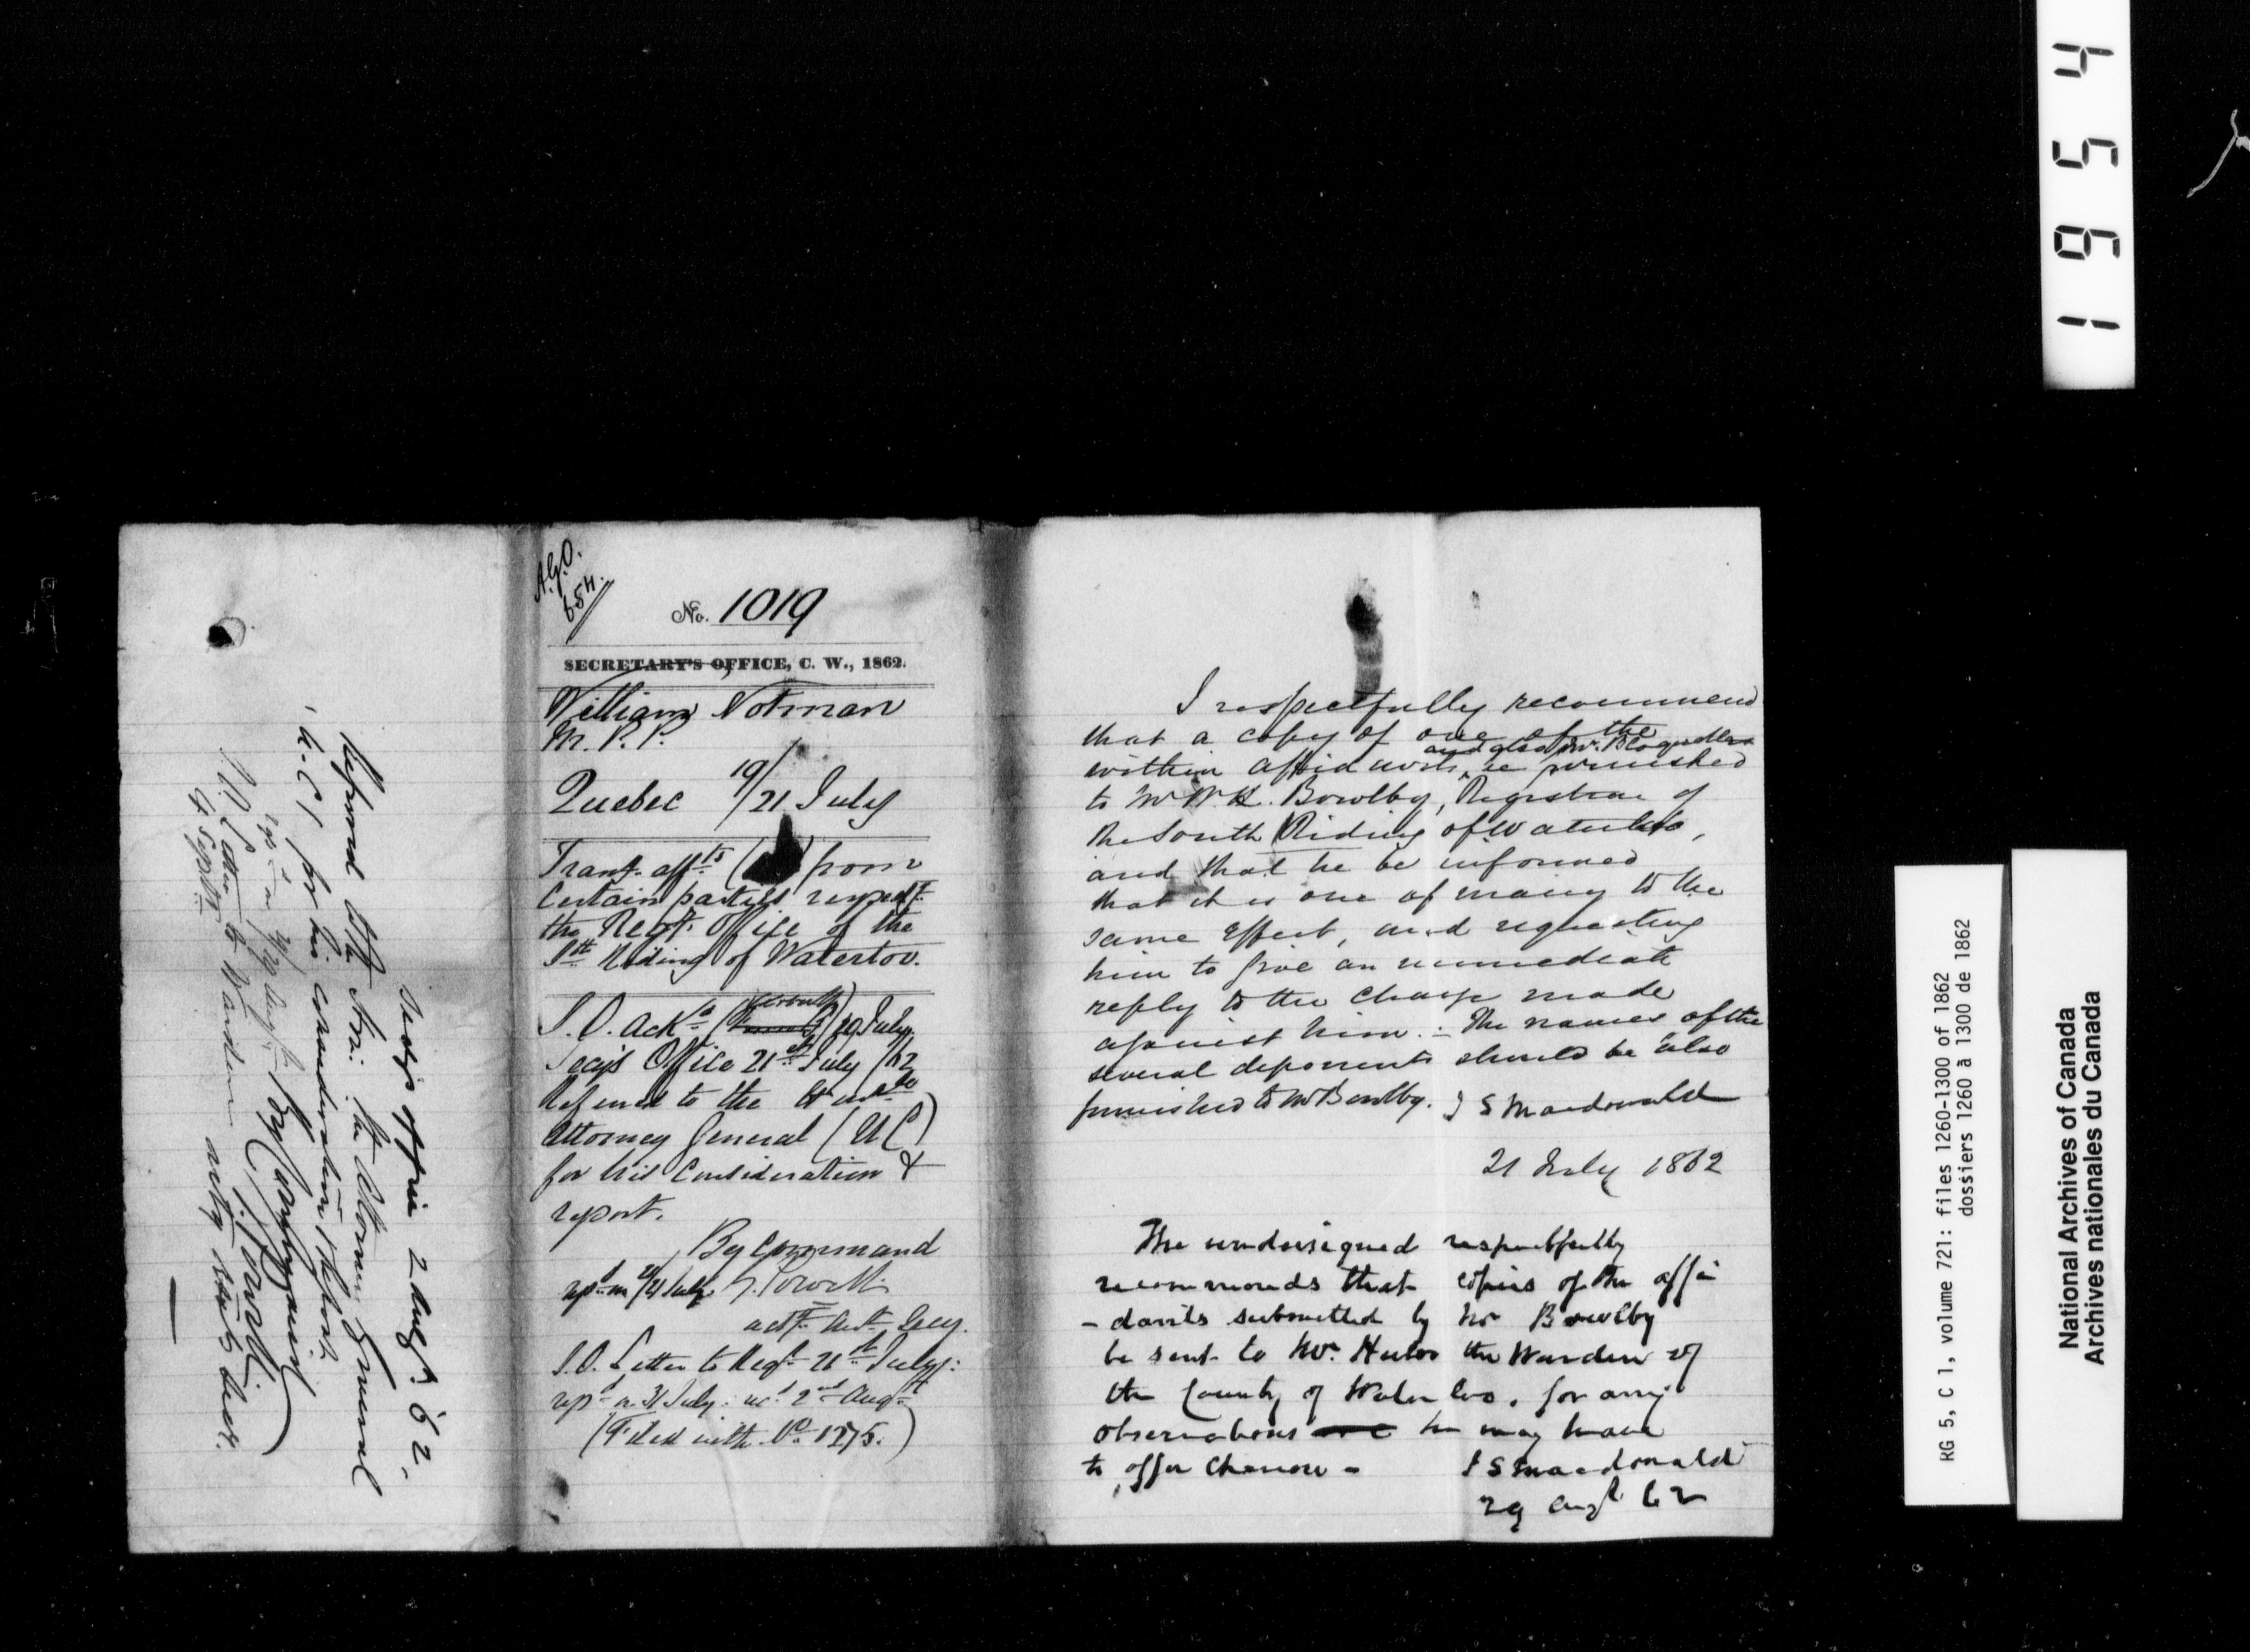 19544
Secy's Office 2 Augt. 62.
Referred to the Hon: the Attorney General
U.C, for his consideration & report.
By Command
4 Septr.
A.G.O.
654.
No. 1019
SECRETARY'S OFFICE, C. W., 1862.
William Notman
M. P. P.
Quebec 19/21 July
Trans. affts ( ) from
Certain parties respectg.
the Regt. Office of the
Sth Riding of Waterloo.
S.O. ackd (verbally) 19 July.
Secy's Office 21st July /62
Referred to the Honble
Attorney General (U C)
for his Consideration &
report.
By Command
repd on 21 July.
actg. Asst. Secy.
S.O. Letter to Regr. 21st July:
repd on 31 July: recd 2nd Augt
(Filed with No. 1275.)
I respectfully recommend
that a copy of one of the
and also Mr.
within affidavits, be furnished
to Mr W. H. Bowlby, Registrar of
the South Riding of Waterloo,
and that he be informed
that it is one of many to the
same effect, and requesting
him to give an immediate
reply to the charge made
against him. - The names of the
several deponents should be also
furnished to Mr Bowlby. J S Macdonald
21 July 1862
The undersigned respectfully
recommends that copies of the affi
- davits submitted by Mr Bowlby
be sent to Mr. the Warden of
the County of Waterloo, for any
observations he may have
to offer thereon - J S Macdonald
29 Augt 62
RG 5, C 1, volume 721: files 1260-1300 of 1862
dossiers 1260 à 1300 de 1862
National Archives of Canada
Archives nationales du Canada